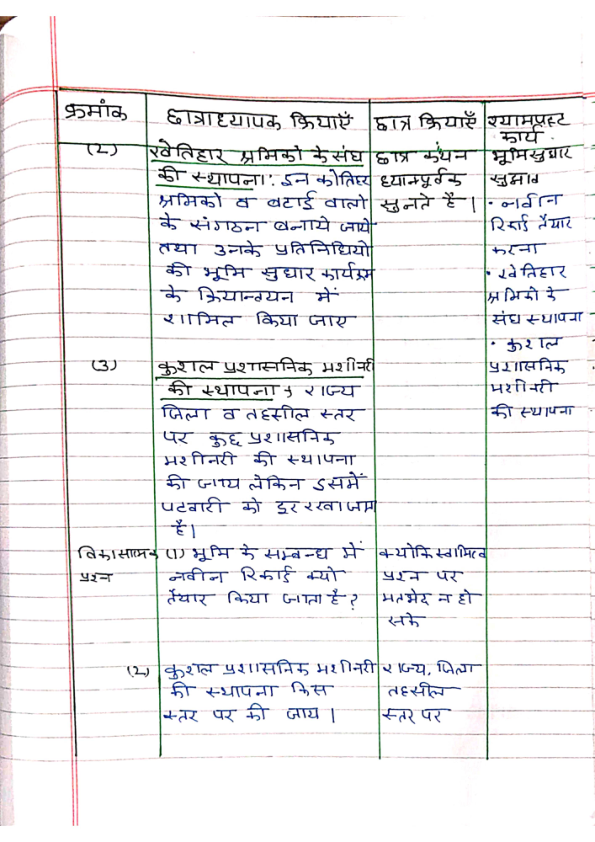 क्रमांक
छात्राध्यापक क्रियाएँ
छात्र क्रियाएँ
श्यामपट्ट
कार्य
(2)
खेतिहार श्रमिको के संघ
की स्थापना:- इन कोतिहर
श्रमिको व बटाई वालो
के संगठन बनाये जाये
तथा उनके प्रतिनिधियो
को भूमि सुधार कार्यक्रम
के क्रियान्वयन में
शामिल किया जाए
छात्र कथन
ध्यानपूर्वक
सुनते है।
भूमि सुधार
सुझाव
• नवीन
रिकार्ड तैयार
करना
• खेतिहार
श्रमिको के
संघ स्थापना
• कुशल
प्रशासनिक
मशीनरी
की स्थापना
(3)
कुशल प्रशासनिक मशीनरी
की स्थापना → राज्य
जिला व तहसील स्तर
पर कुछ प्रशासनिक
मशीनरी की स्थापना
की जाय लेकिन इसमें
पटवारी को दूर रखा जाय
है।
विकासात्मक
प्रश्न
(1) भूमि के सम्बन्ध में
नवीन रिकार्ड क्यो
तैयार किया जाता है?
क्योकि स्वामित्व
प्रश्न पर
मतभेद न हो
सके
(2)
कुशल प्रशासनिक मशीनरी
की स्थापना किस
स्तर पर की जाय।
राज्य, जिला
तहसील
स्तर पर